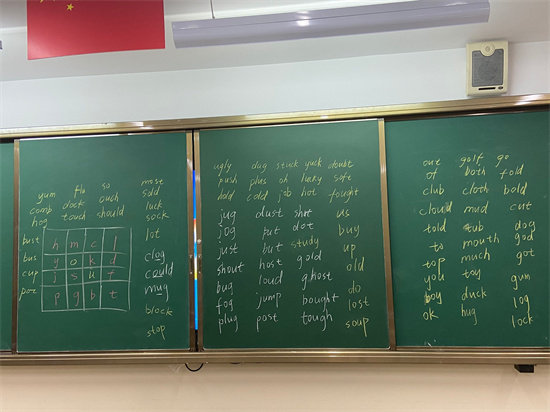 flu so most
yum dock ouch sold
comb touch should luck
hog sock
lot
bust h m c l
bus y o k d clog
cup j s u f could
por p g b t mug
block
stop
ugly dog stuck yuck doubt
push plus oh lucky soft
hold cold job hot fought
jug dust shot us
jog put dot buy
just but study up
shout host gold old
bug loud ghost do
fog jump bought lost
plug post tough soup
our golf go
of both fold
club cloth bold
cloud mud cut
told tub dog
to mouth god
top much got
you toy gum
boy duck log
ok hug lock